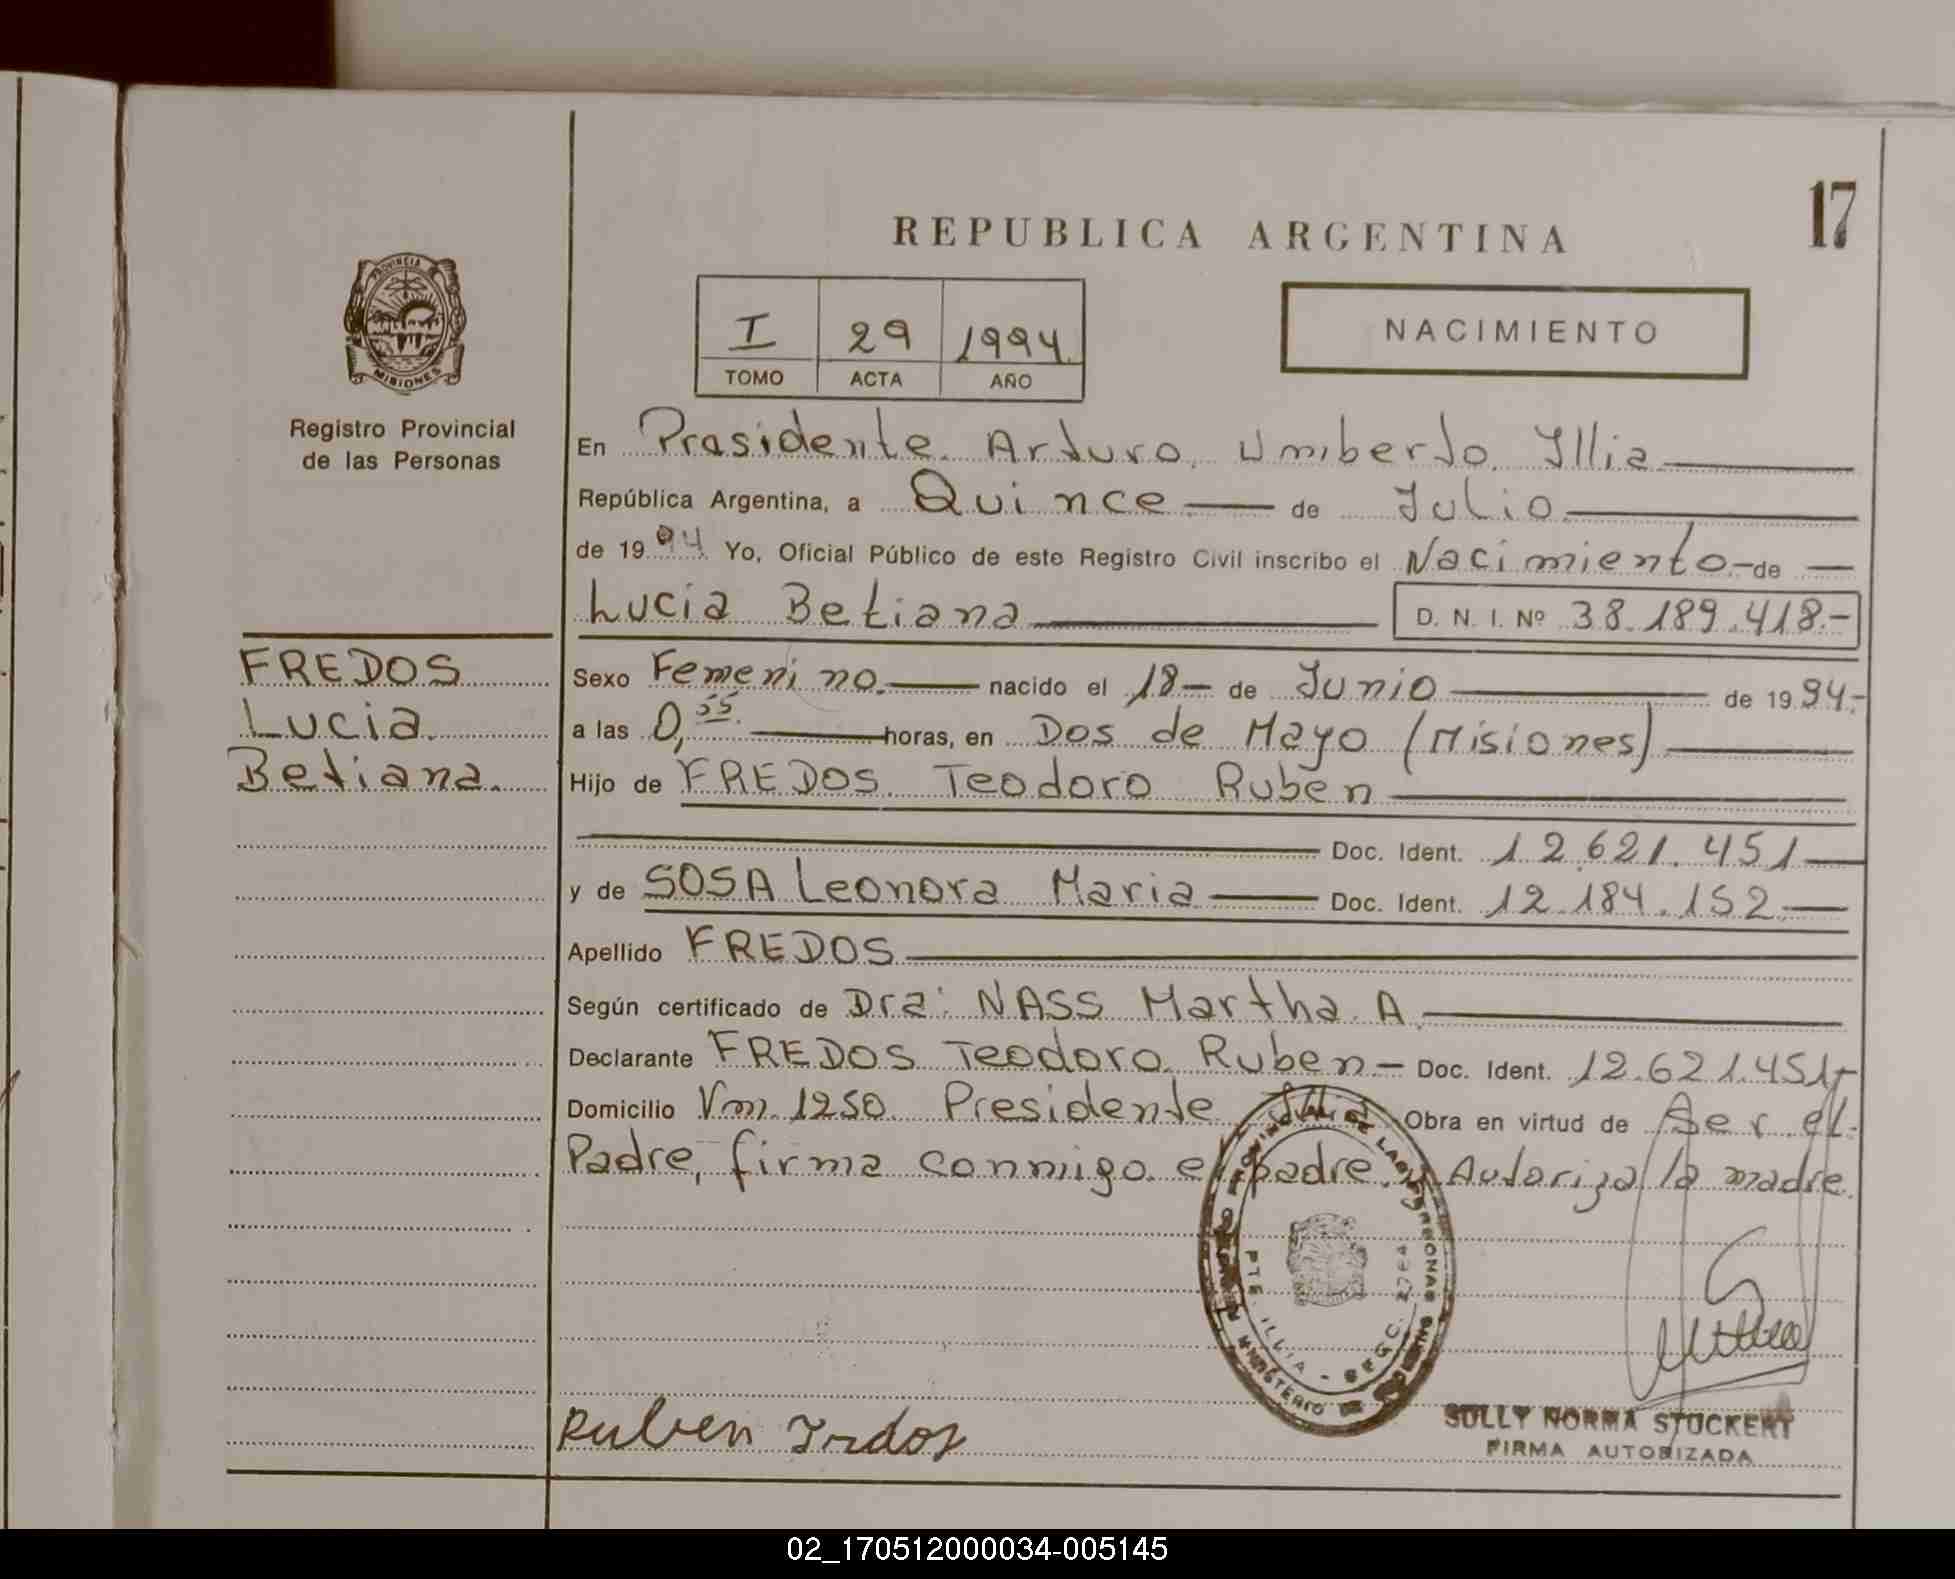 17
REPUBLICA ARGENTINA
PROVINCIA
MISIONES
Registro Provincial
de las Personas
I 29 1994
TOMO ACTA AÑO
NACIMIENTO
En Prasidente Arturo Umberto Illia
República Argentina, a Quince de Julio
de 1994 Yo, Oficial Público de este Registro Civil inscribo el Nacimiento de
Lucia Betiana D. N. I. Nº 38.189.418.-
FREDOS
Lucia
Betiana.
Sexo Femenino. nacido el 18- de Junio de 1994.-
a las 0,55 horas, en Dos de Mayo (Misiones)
Hijo de FREDOS Teodoro Ruben
Doc. Ident. 12.621.451
y de SOSA Leonora Maria Doc. Ident. 12.184.152
Apellido FREDOS
Según certificado de Dra: NASS Martha A.
Declarante FREDOS Teodoro Ruben - Doc. Ident. 12.621.451-
Domicilio Vm. 1250 Presidente Illia Obra en virtud de Ser el
Padre, firma conmigo el padre y Autoriza la madre.
PTE. ILLIA - SECC.
MINISTERIO DE
Ruben
SULLY NORMA STUCKERT
FIRMA AUTORIZADA
02_170512000034-005145